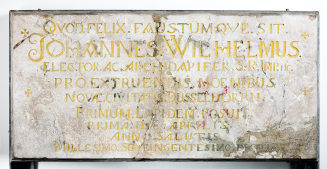 QVOD FELIX. FAUSTUMQVE. SIT.
JOHANNES. WILHELMUS.
ELECTOR. AC. ARCHIDAPIFER. S. R. IMP.
PRO. EXTRUENDIS. MOENIBUS
NOVAE. CIVITATIS DUSSELDORPII
PRIMUM. LAPIDEM. POSUIT
PRIMA APRILIS
ANNO SALUTIS
MILLESIMO SEPTINGENTESIMO